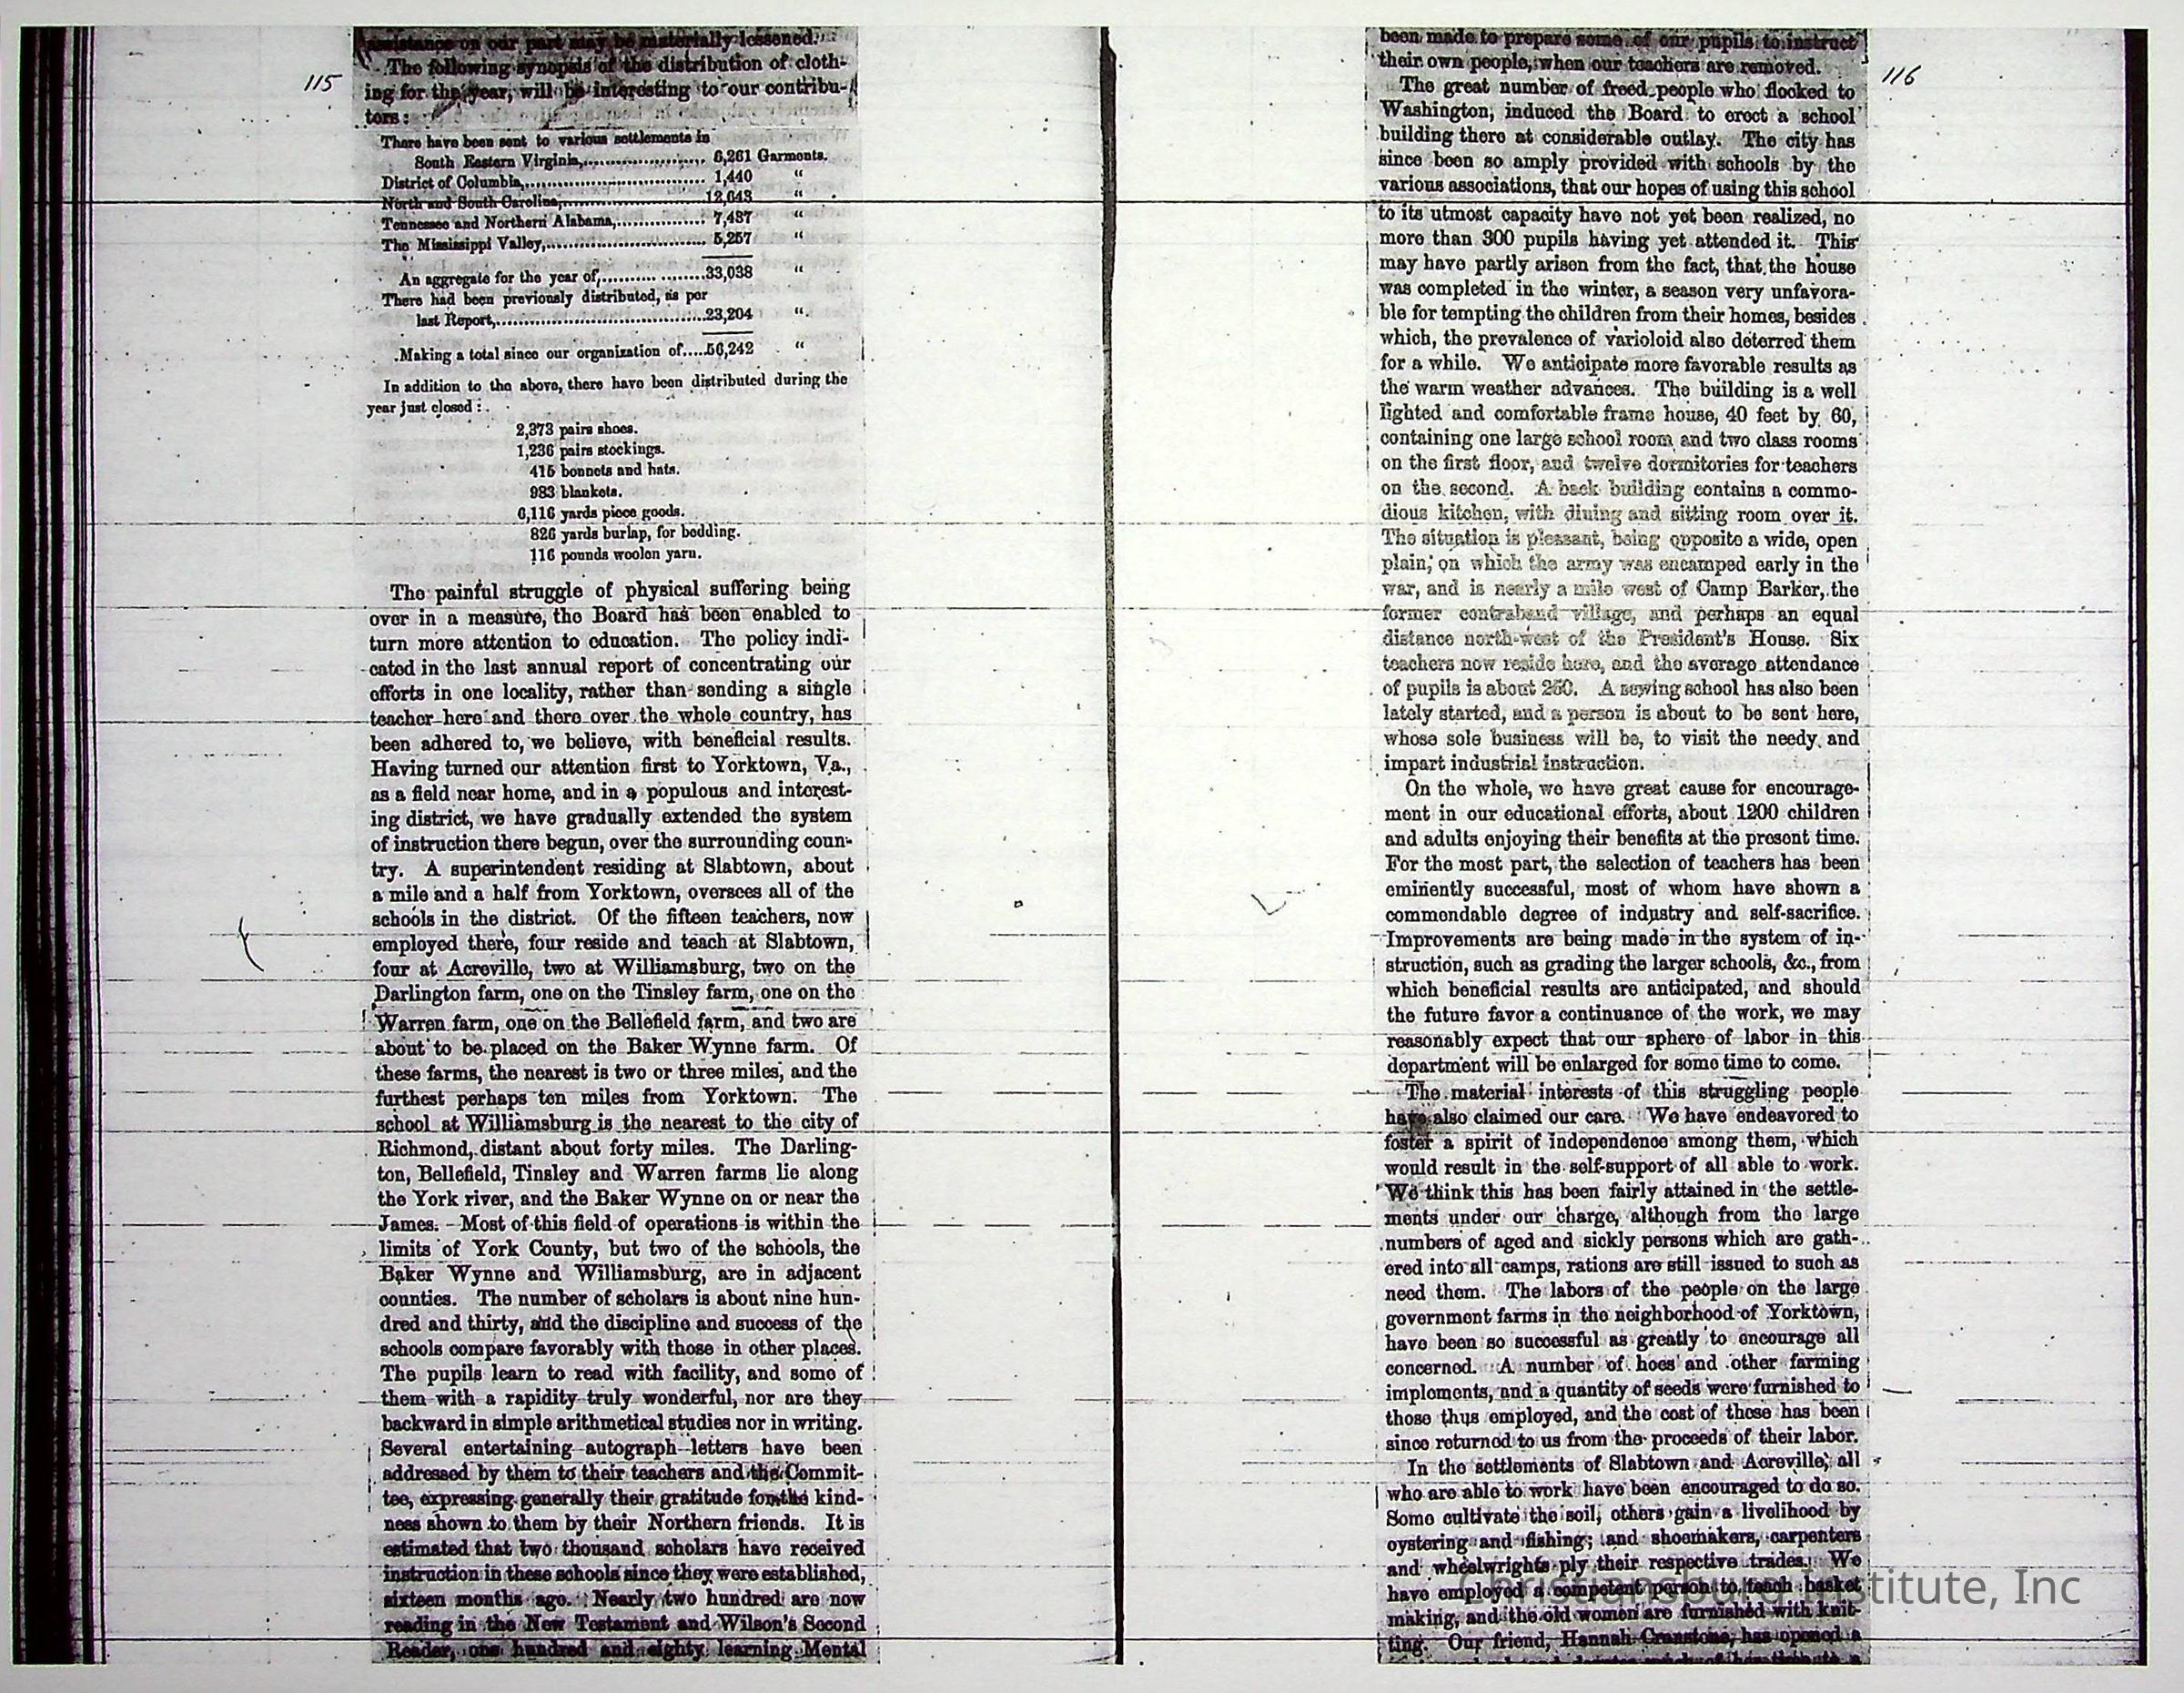 115
assistance on our part may be materially lessened.
The following synopsis of the distribution of cloth-
ing for the year, will be interesting to our contribu-
tors:
There have been sent to various settlements in
South Eastern Virginia,...................... 6,261 Garments.
District of Columbia,.................................. 1,440 "
North and South Carolina,...........................12,643 "
Tennessee and Northern Alabama,................ 7,437 "
The Mississippi Valley,.............................. 5,257 "
An aggregate for the year of,...................33,038 "
There had been previously distributed, as per
last Report,.......................................23,204 "
Making a total since our organization of.....56,242 "
In addition to the above, there have been distributed during the
year just closed:
2,373 pairs shoes.
1,236 pairs stockings.
415 bonnets and hats.
983 blankets.
6,116 yards piece goods.
826 yards burlap, for bedding.
116 pounds woolen yarn.
The painful struggle of physical suffering being
over in a measure, the Board has been enabled to
turn more attention to education. The policy indi-
cated in the last annual report of concentrating our
efforts in one locality, rather than sending a single
teacher here and there over the whole country, has
been adhered to, we believe, with beneficial results.
Having turned our attention first to Yorktown, Va.,
as a field near home, and in a populous and interest-
ing district, we have gradually extended the system
of instruction there begun, over the surrounding coun-
try. A superintendent residing at Slabtown, about
a mile and a half from Yorktown, oversees all of the
schools in the district. Of the fifteen teachers, now
employed there, four reside and teach at Slabtown,
four at Acreville, two at Williamsburg, two on the
Darlington farm, one on the Tinsley farm, one on the
Warren farm, one on the Bellefield farm, and two are
about to be placed on the Baker Wynne farm. Of
these farms, the nearest is two or three miles, and the
furthest perhaps ten miles from Yorktown. The
school at Williamsburg is the nearest to the city of
Richmond, distant about forty miles. The Darling-
ton, Bellefield, Tinsley and Warren farms lie along
the York river, and the Baker Wynne on or near the
James. Most of this field of operations is within the
limits of York County, but two of the schools, the
Baker Wynne and Williamsburg, are in adjacent
counties. The number of scholars is about nine hun-
dred and thirty, and the discipline and success of the
schools compare favorably with those in other places.
The pupils learn to read with facility, and some of
them with a rapidity truly wonderful, nor are they
backward in simple arithmetical studies nor in writing.
Several entertaining autograph letters have been
addressed by them to their teachers and the Commit-
tee, expressing generally their gratitude for the kind-
ness shown to them by their Northern friends. It is
estimated that two thousand scholars have received
instruction in these schools since they were established,
sixteen months ago. Nearly two hundred are now
reading in the New Testament and Wilson's Second
Reader, one hundred and eighty learning Mental
116
been made to prepare some of our pupils to instruct
their own people, when our teachers are removed.
The great number of freed people who flocked to
Washington, induced the Board to erect a school
building there at considerable outlay. The city has
since been so amply provided with schools by the
various associations, that our hopes of using this school
to its utmost capacity have not yet been realized, no
more than 300 pupils having yet attended it. This
may have partly arisen from the fact, that the house
was completed in the winter, a season very unfavora-
ble for tempting the children from their homes, besides
which, the prevalence of varioloid also deterred them
for a while. We anticipate more favorable results as
the warm weather advances. The building is a well
lighted and comfortable frame house, 40 feet by 60,
containing one large school room and two class rooms
on the first floor, and twelve dormitories for teachers
on the second. A back building contains a commo-
dious kitchen, with dining and sitting room over it.
The situation is pleasant, being opposite a wide, open
plain, on which the army was encamped early in the
war, and is nearly a mile west of Camp Barker, the
former contraband village, and perhaps an equal
distance north-west of the President's House. Six
teachers now reside here, and the average attendance
of pupils is about 250. A sewing school has also been
lately started, and a person is about to be sent here,
whose sole business will be, to visit the needy and
impart industrial instruction.
On the whole, we have great cause for encourage-
ment in our educational efforts, about 1200 children
and adults enjoying their benefits at the present time.
For the most part, the selection of teachers has been
eminently successful, most of whom have shown a
commendable degree of industry and self-sacrifice.
Improvements are being made in the system of in-
struction, such as grading the larger schools, &c., from
which beneficial results are anticipated, and should
the future favor a continuance of the work, we may
reasonably expect that our sphere of labor in this
department will be enlarged for some time to come.
The material interests of this struggling people
have also claimed our care. We have endeavored to
foster a spirit of independence among them, which
would result in the self-support of all able to work.
We think this has been fairly attained in the settle-
ments under our charge, although from the large
numbers of aged and sickly persons which are gath-
ered into all camps, rations are still issued to such as
need them. The labors of the people on the large
government farms in the neighborhood of Yorktown,
have been so successful as greatly to encourage all
concerned. A number of hoes and other farming
implements, and a quantity of seeds were furnished to
those thus employed, and the cost of these has been
since returned to us from the proceeds of their labor.
In the settlements of Slabtown and Acreville, all
who are able to work have been encouraged to do so.
Some cultivate the soil, others gain a livelihood by
oystering and fishing; and shoemakers, carpenters
and wheelwrights ply their respective trades. We
have employed a competent person to teach basket
making, and the old women are furnished with knit-
ting. Our friend, Hannah Cranstone, has opened a
Christiansburg Institute, Inc